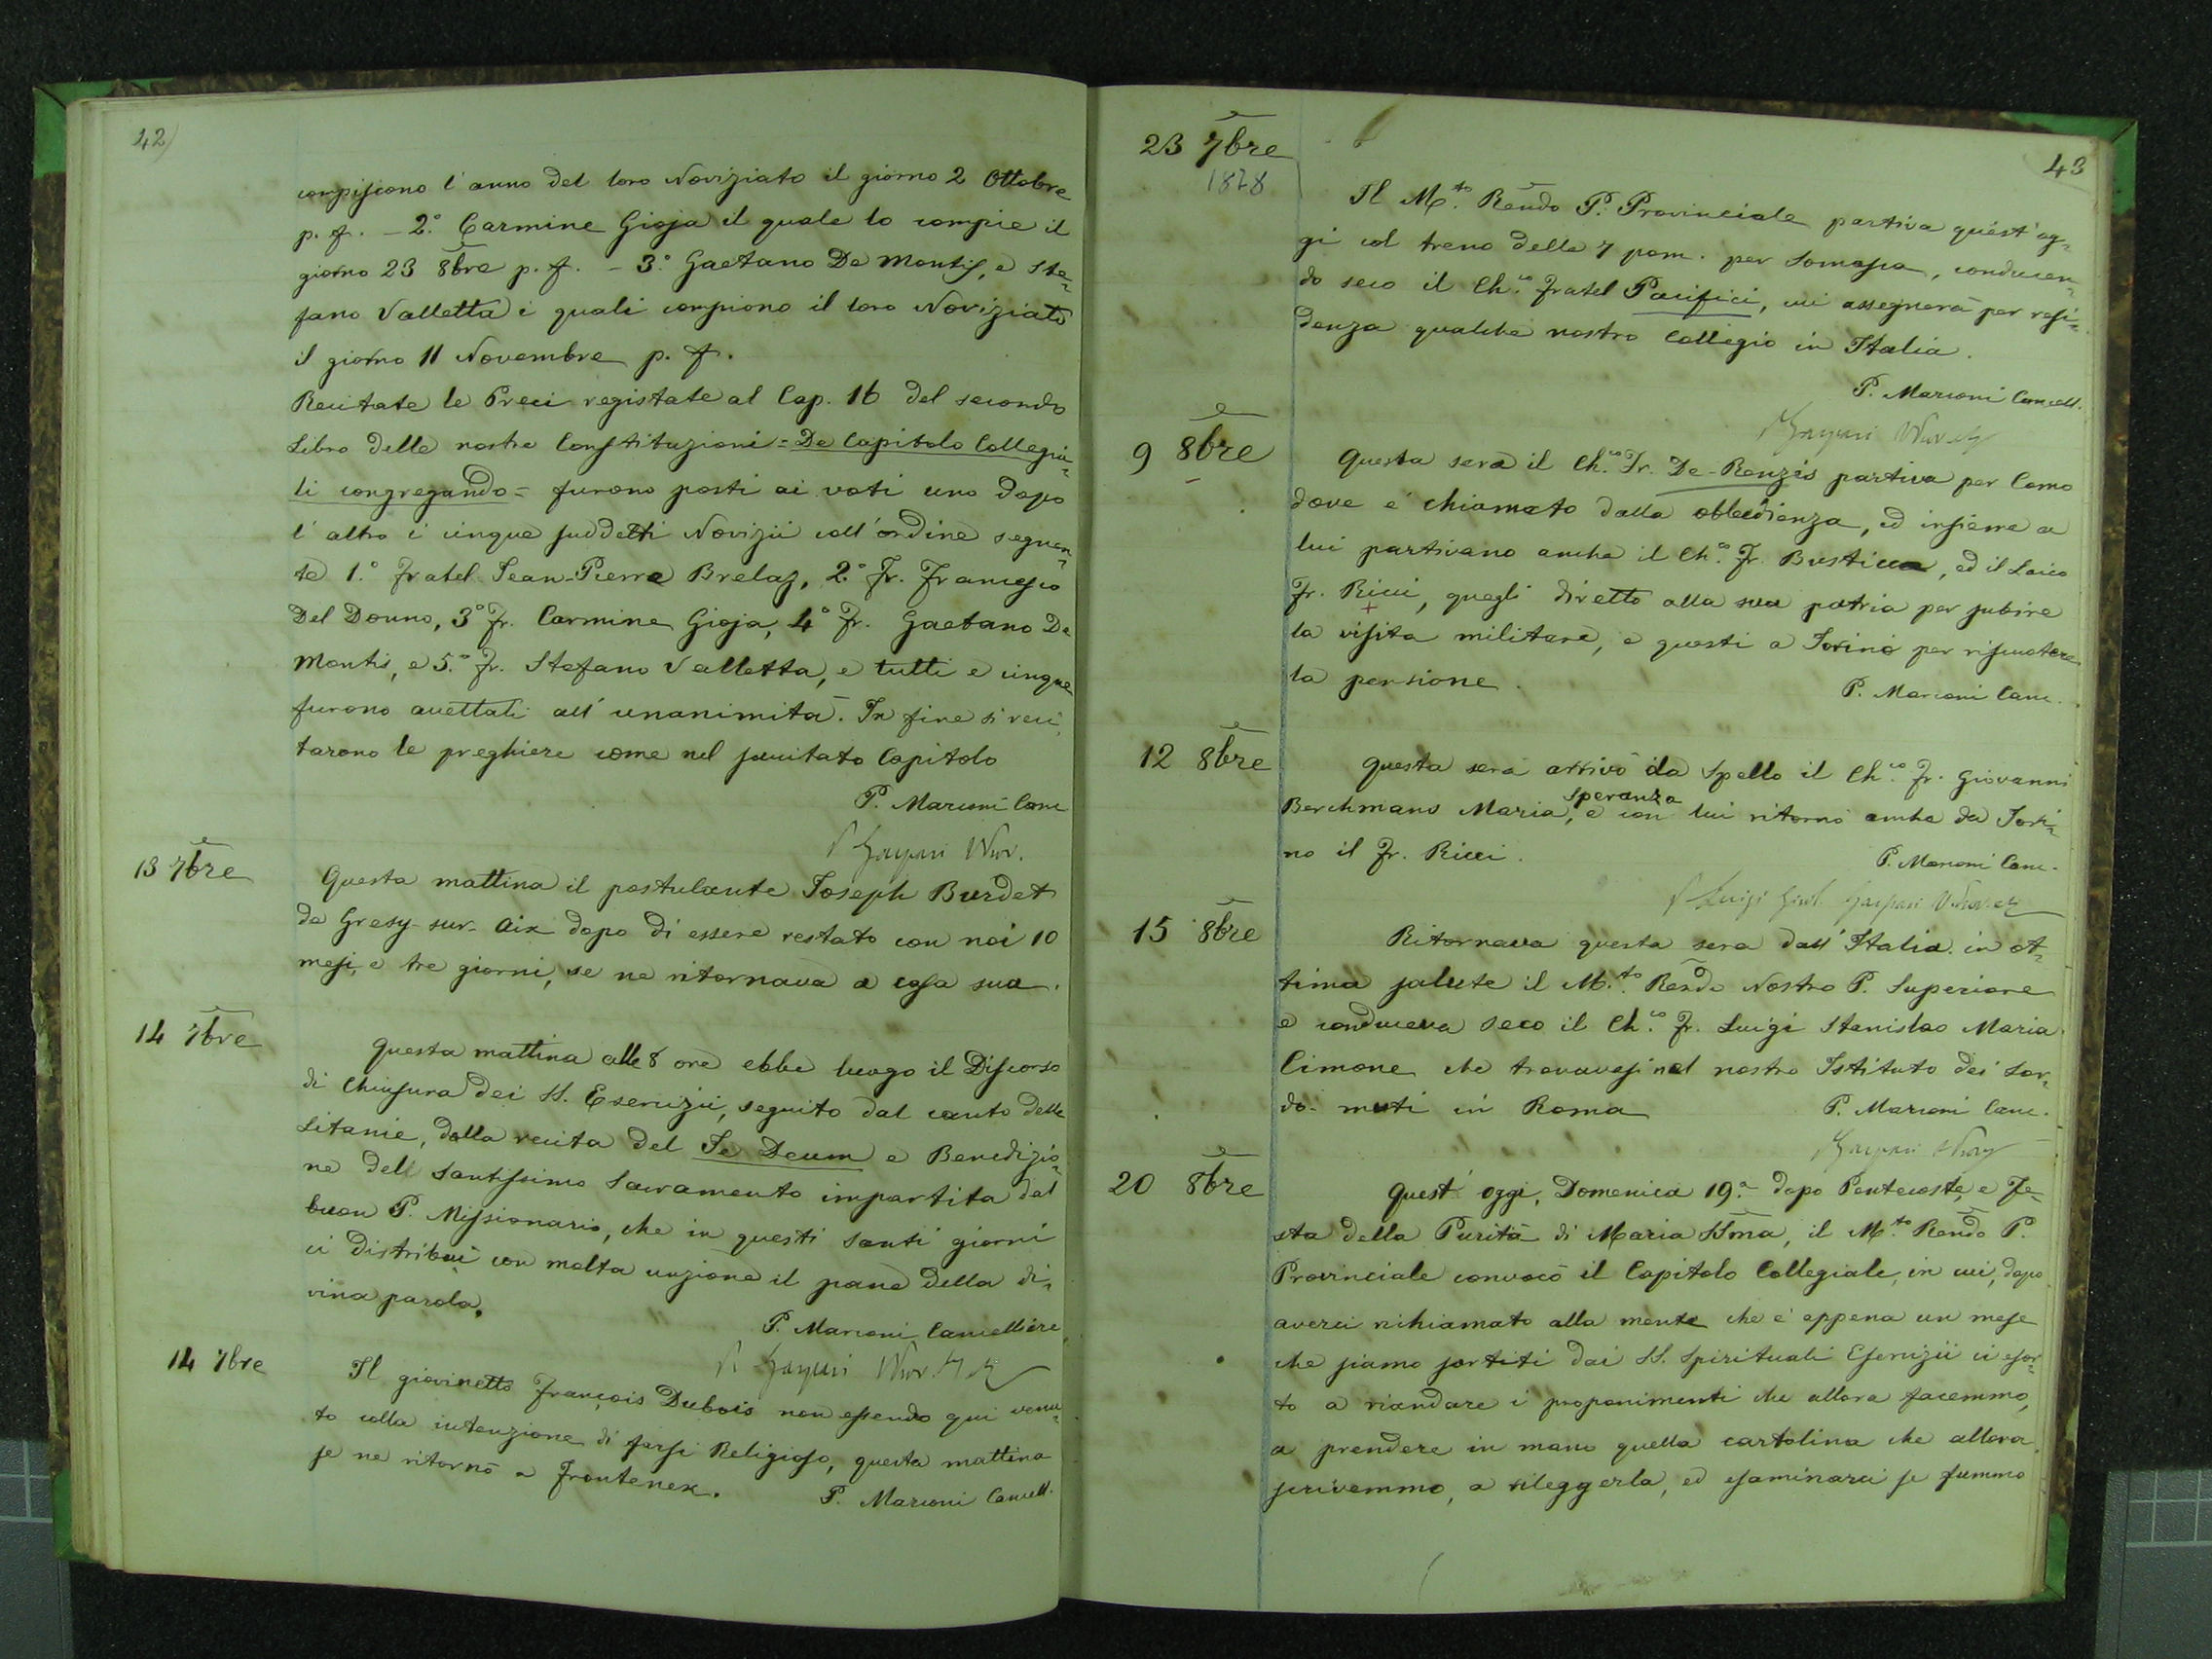 42)
compiscono l'anno del loro Noviziato il giorno 2 Ottobre
p. f. – 2.° Carmine Gioja il quale lo compie il
giorno 23 8bre p. f. – 3.° Gaetano De Montis, e Ste-
fano Valletta i quali compiono il loro Noviziato
il giorno 11 Novembre p. f.
Recitate le Preci registate al Cap. 16 del secondo
Libro delle nostre Constituzioni = De Capitolo Collegia-
li congregando = furono posti ai voti uno dopo
l'altro i cinque suddetti Novizii coll'ordine seguen-
te 1.° Fratel Jean-Pierre Brelaz, 2.° Fr. Francesco
Del Donno, 3° Fr. Carmine Gioja, 4° Fr. Gaetano De
Montis, e 5.° Fr. Stefano Valletta, e tutti e cinque
furono accettati all'unanimità. In fine si reci-
tarono le preghiere come nel succitato Capitolo
P. Marconi Canc
P Gaspari
13 7bre
Questa mattina il postulante Joseph Burdet
de Gresy-sur-Aix dopo di essere restato con noi 10
mesi, e tre giorni, se ne ritornava a casa sua.
14 7bre
Questa mattina alle 8 ore ebbe luogo il Discorso
di Chiusura dei SS. Esercizii, seguito dal canto delle
Litanie, dalla recita del Te Deum e Benedizio-
ne dell Santissimo Sacramento impartita dal
buon P. Missionario, che in questi Santi giorni
ci distribuì con molta unzione il pane della di-
vina parola.
P. Marconi Cancelliere
P Gaspari
14 7bre
Il giovinetto François Dubois non essendo qui venu-
to colla intenzione di farsi Religioso, questa mattina
se ne ritornò a Frontenex.
P. Marconi Cancell.
43
23 7bre
1878
Il M.to Rendo P. Provinciale partiva quest'og-
gi col treno delle 7 pom. per Somasca, conducen-
do seco il Ch.co Fratel Pacifici, cui assegnerà per resi-
denza qualche nostro Collegio in Italia.
P. Marconi Cancell.
Gaspari
9 8bre
Questa sera il Ch.co Fr. De-Renzis partiva per Como
dove è chiamato dalla obbedienza, ed insieme a
lui partivano anche il Ch.co Fr. Busticca, ed il Laico
Fr. Ricci, quegli diretto alla sua patria per subire
la visita militare, e questi a Torino per riscuotere
la pensione.
P. Marconi Canc.
12 8bre
Questa sera arrivò da Spello il Ch.co Fr. Giovanni
Berchmans Maria, speranza e con lui ritornò anche da Tori-
no il Fr. Ricci.
P. Marconi Canc.
P Luigi Girol. Gaspari
15 8bre
Ritornava questa sera dall'Italia in ot-
tima salute il M.to Rendo Nostro P. Superiore
e conduceva seco il Ch.co Fr. Luigi Stanislao Maria
Cimone che trovavasi nel nostro Istituto dei Sor-
do-muti in Roma
P. Marconi Canc.
Gaspari
20 8bre
Quest'oggi, Domenica 19.a dopo Pentecoste, e Fe-
sta della Purità di Maria SSma, il M.to Rendo P.
Provinciale convocò il Capitolo Collegiale, in cui, dopo
averci richiamato alla mente che è appena un mese
che siamo sortiti dai SS. Spirituali Esercizii ci esor-
tò a riandare i proponimenti che allora facemmo,
a prendere in mano quella cartolina che allora
scrivemmo, a rileggerla, ed esaminarci se fummo